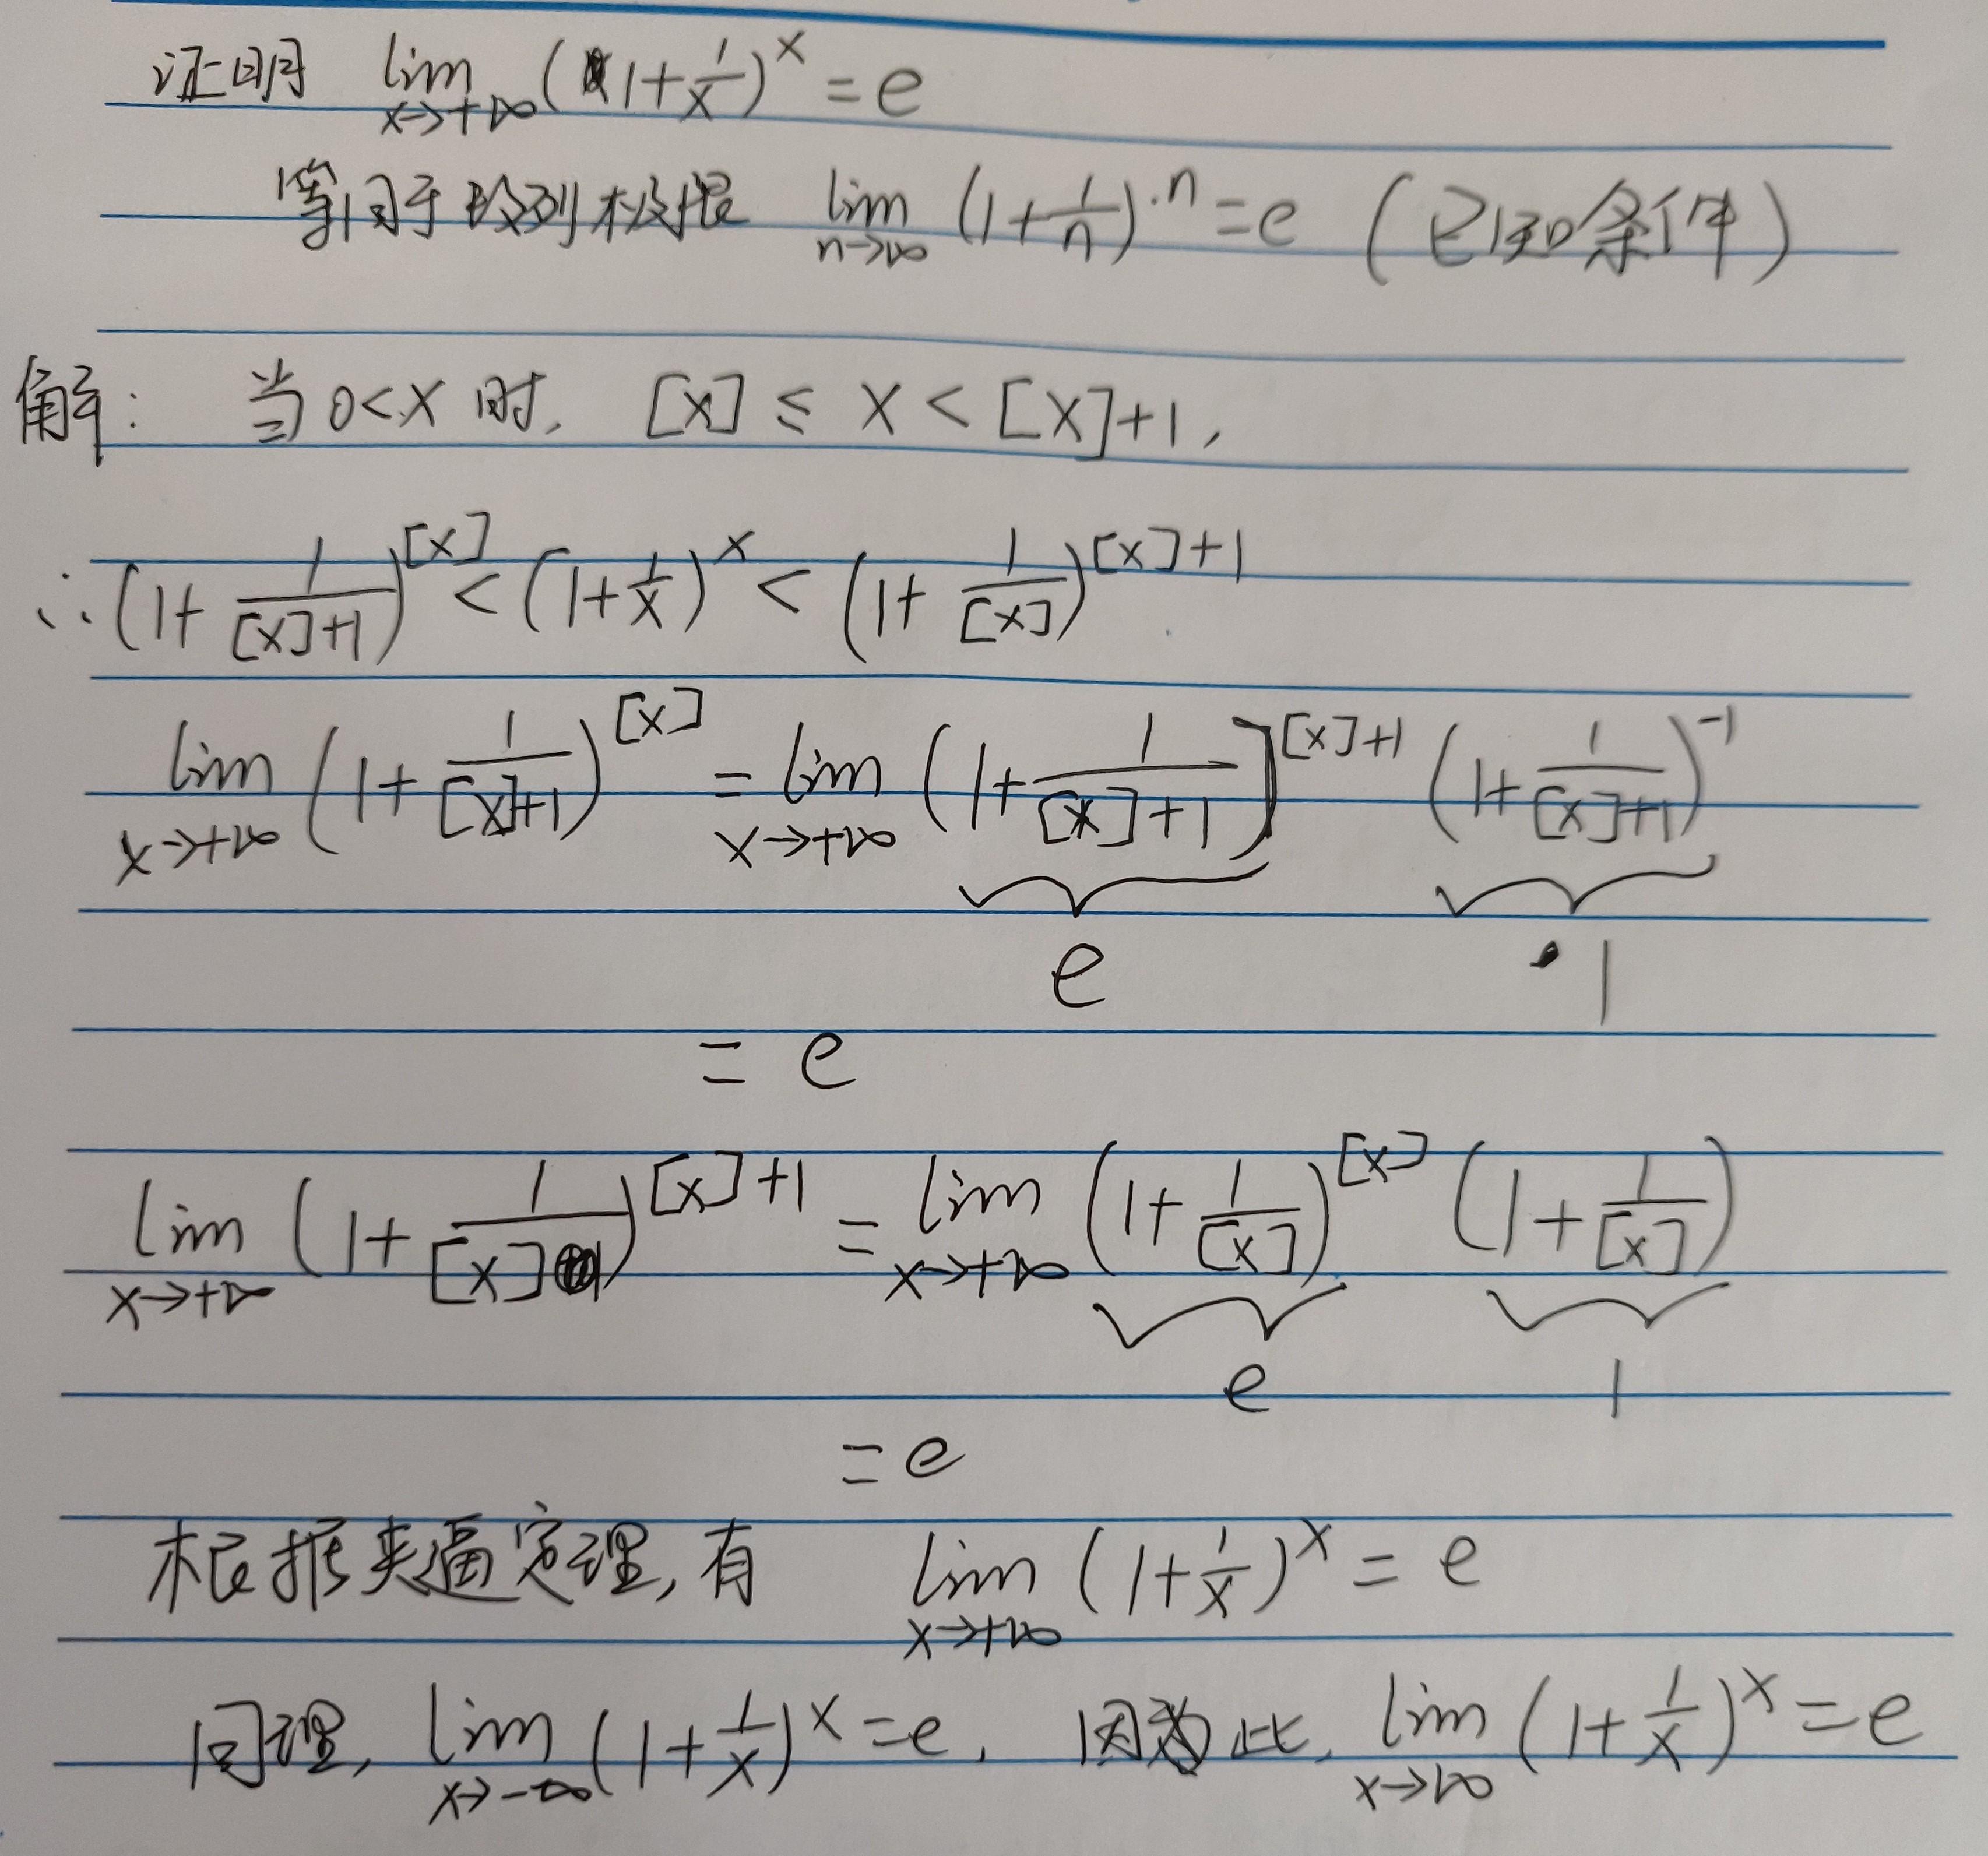 证明 lim x→+∞ (1+1/x)^x = e
等同于数列极限 lim n→∞ (1+1/n)^n = e (已知条件)
解: 当 0<x 时, [x] ≤ x < [x]+1,
∴ (1+ 1/([x]+1))^[x] < (1+1/x)^x < (1+ 1/[x])^([x]+1)
lim x→+∞ (1+ 1/([x]+1))^[x] = lim x→+∞ (1+ 1/([x]+1))^([x]+1) (1+ 1/([x]+1))^-1
e · 1
= e
lim x→+∞ (1+ 1/[x])^([x]+1) = lim x→+∞ (1+ 1/[x])^[x] (1+ 1/[x])
e 1
= e
根据夹逼定理, 有 lim x→+∞ (1+1/x)^x = e
同理, lim x→-∞ (1+1/x)^x = e, 因此, lim x→∞ (1+1/x)^x = e